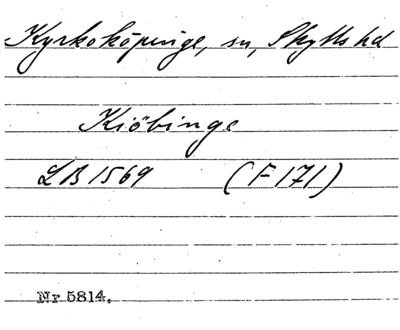 Kyrkoköpinge, sn, Skytts hd
Kiöbinge
LB 1569 (F 171)
Nr 5814.